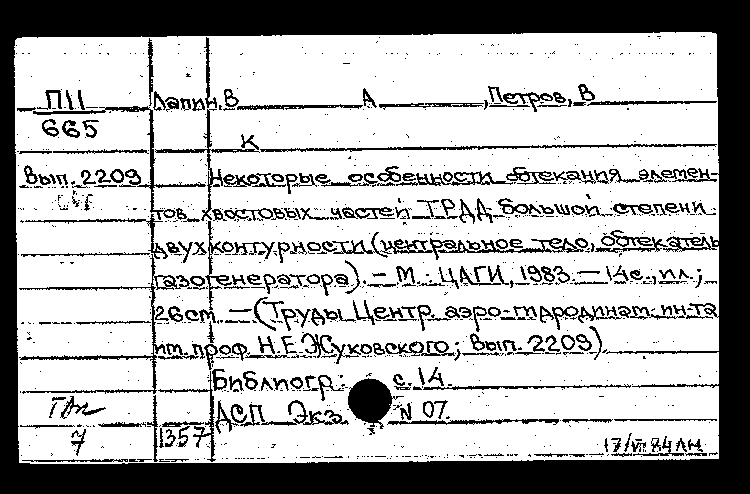 П11 Лапин, В А , Петров, В
665
К
Вып. 2209 Некоторые особенности обтекания элемен-
тов хвостовых частей ТРДД большой степени
двухконтурности (центральное тело, обтекатель
газогенератора). — М.: ЦАГИ, 1983. — 14с., ил.;
26см. — (Труды Центр. аэро-гидродинам. ин-та
им. проф. Н.Е. Жуковского; Вып. 2209).
Библиогр.: с. 14.
ДСП Экз. N 07.
7 1357 17/VII 84 ЛН